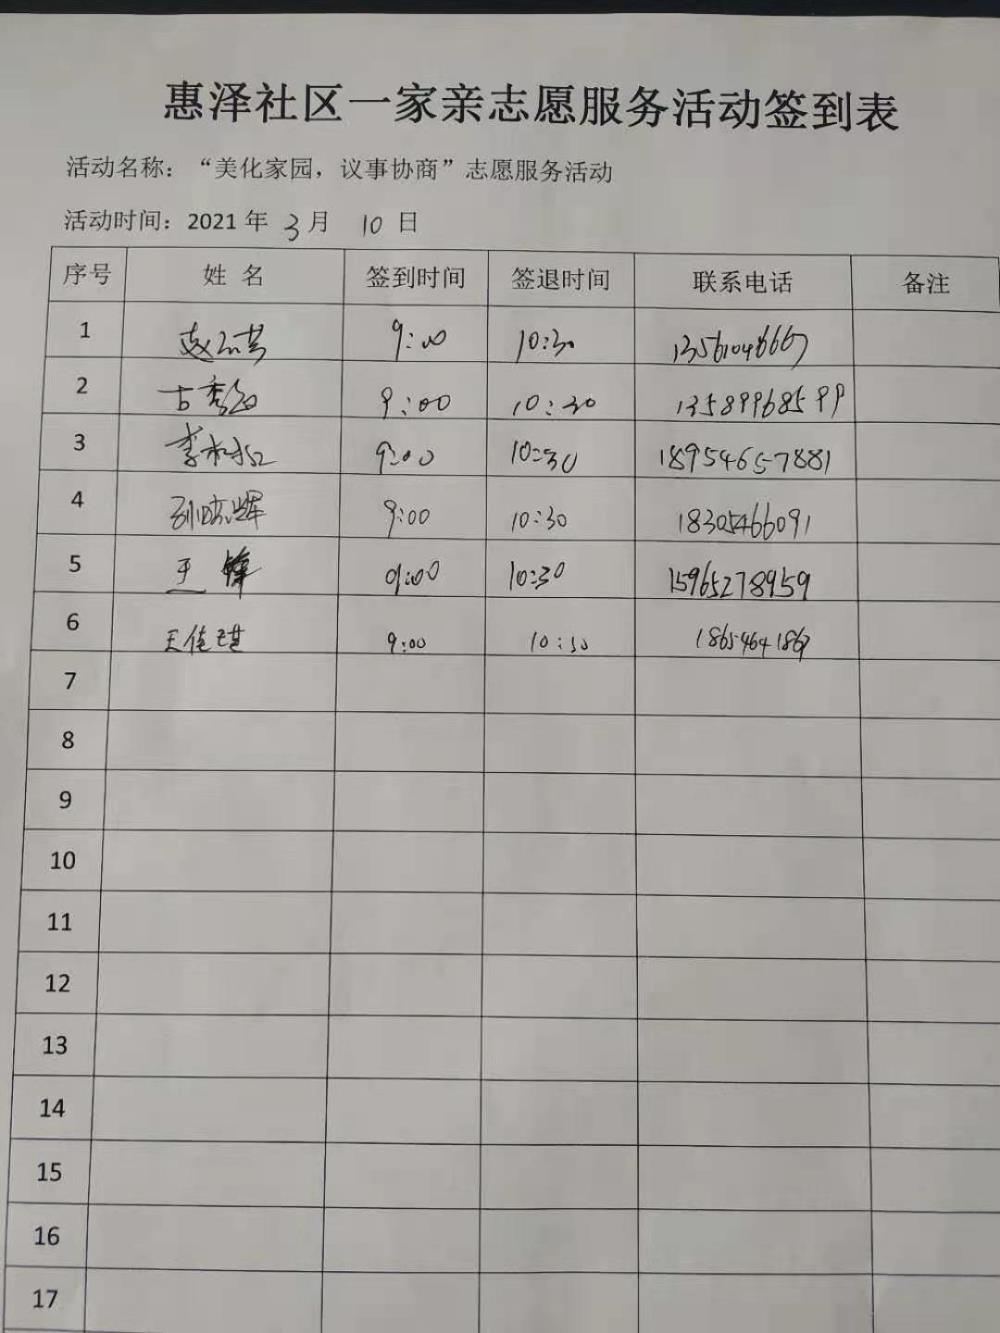 惠泽社区一家亲志愿服务活动签到表
活动名称：“美化家园，议事协商”志愿服务活动
活动时间：2021 年 3 月 10 日
序号 姓 名 签到时间 签退时间 联系电话 备注
1 9:00 10:30
2 9:00 10:30 13589968599
3 9:00 10:30 18954657881
4 9:00 10:30 18305466091
5 王 锋 9:00 10:30 15965278959
6 王佳琪 9:00 10:30
7
8
9
10
11
12
13
14
15
16
17